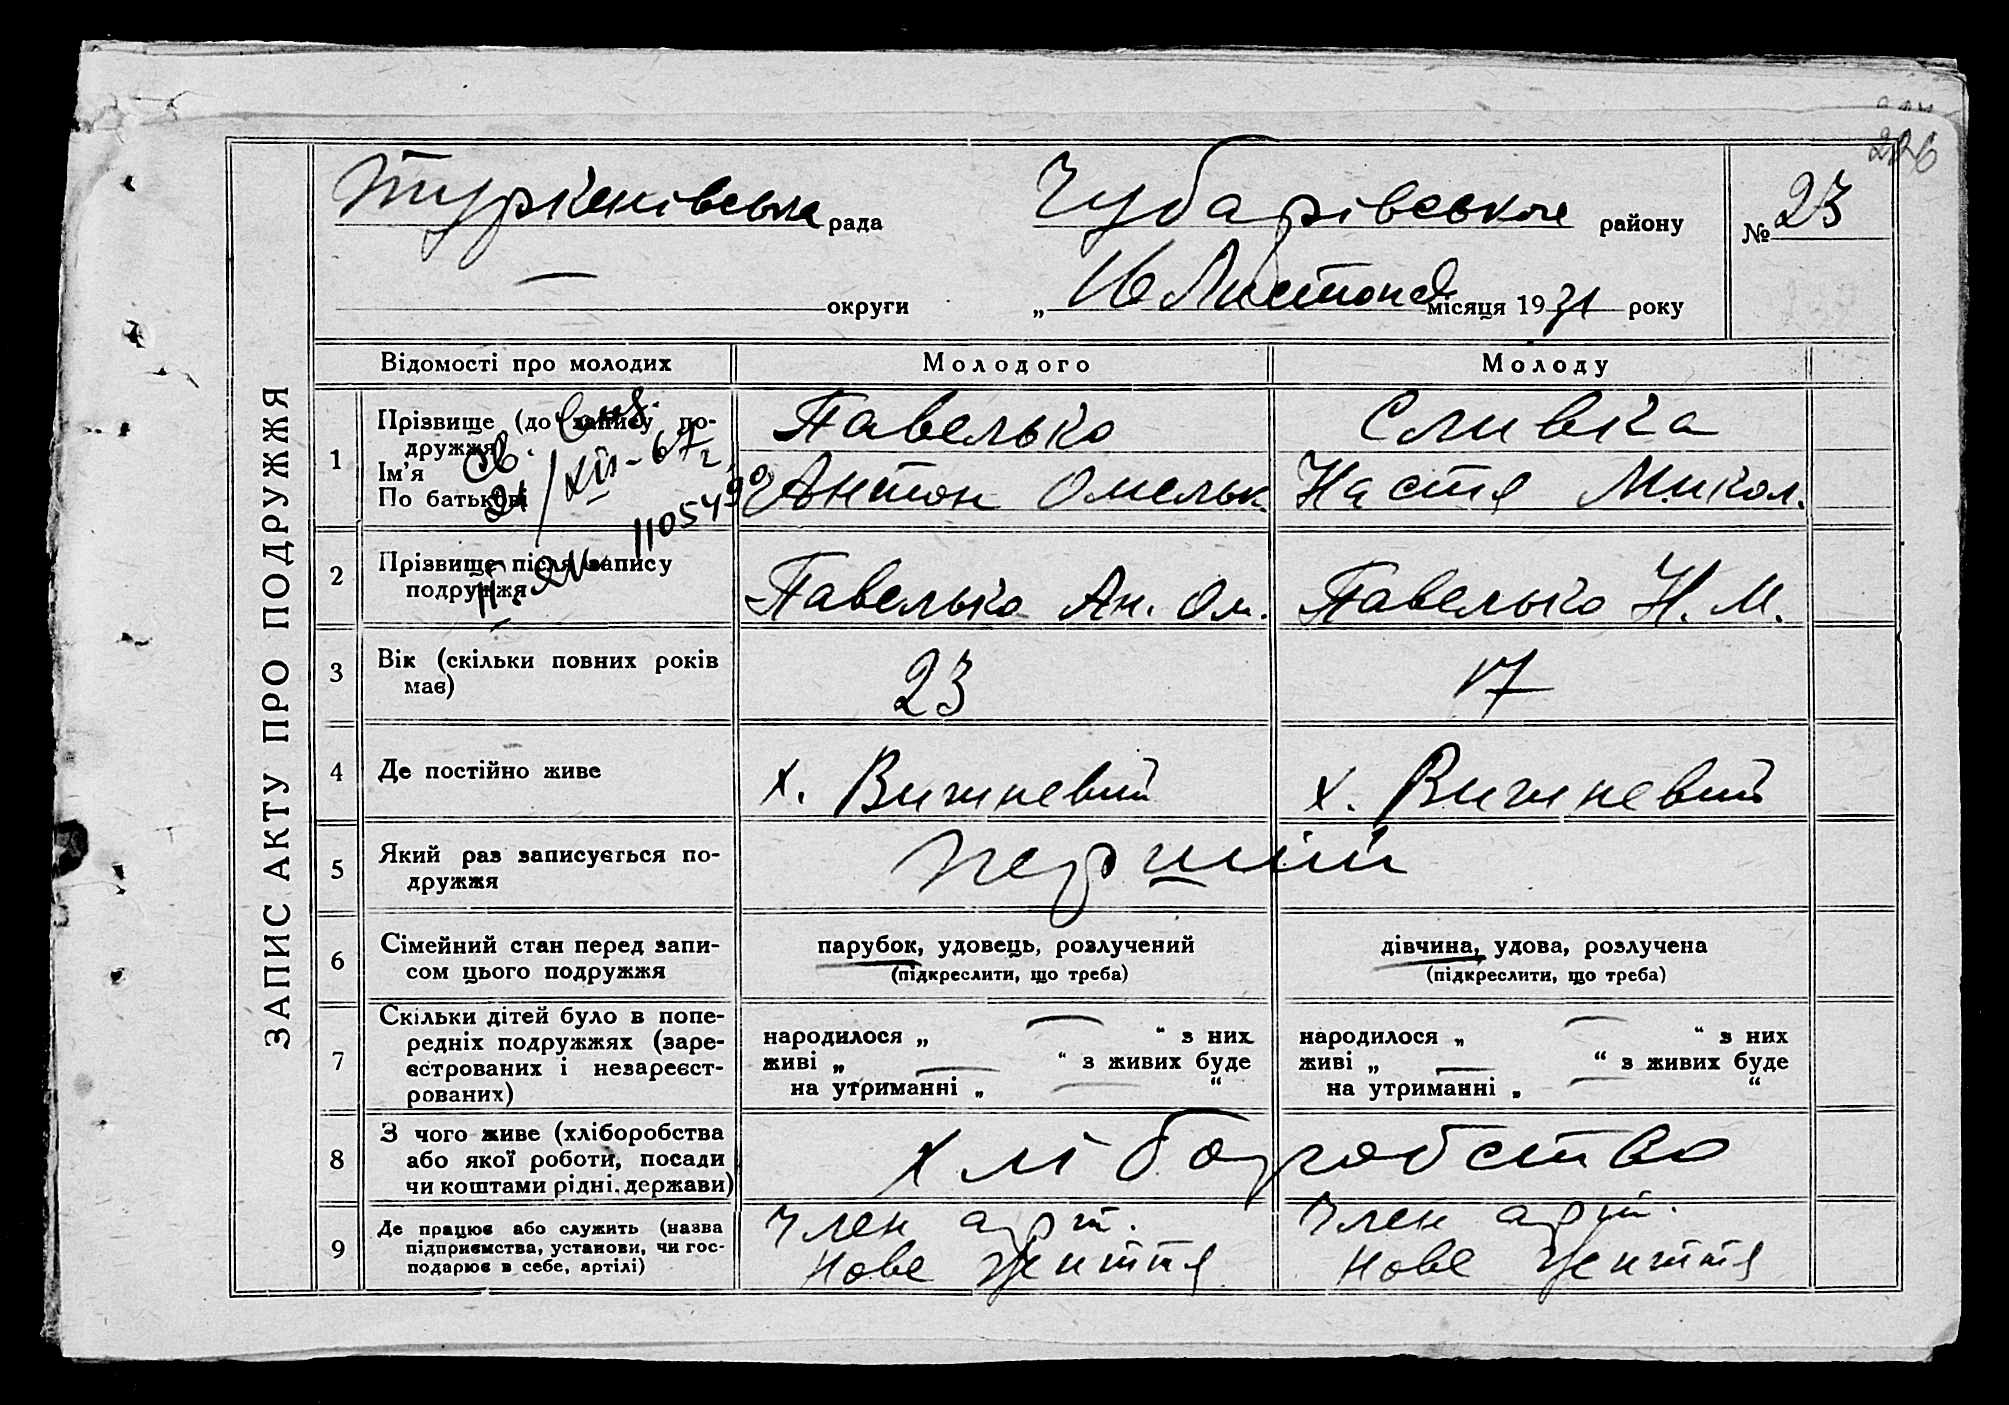 226
ЗАПИС АКТУ ПРО ПОДРУЖЖЯ
Туркенівська рада Чубарівського району № 23
— округи „ 16 Листопад місяця 1931 року
Відомості про молодих Молодого Молоду
1 Прізвище (до запису по-
дружжя)
Ім'я
По батькові
Павелько Сливка
Антон Омельк. Настя Микол.
Св.
21/XII-67г.
110549
2 Прізвище після запису
подружжя
Павелько Ан. Ом. Павелько Н. М.
3 Вік (скільки повних років
має)
23 17
4 Де постійно живе х. Вишневий х. Вишневий
5 Який раз записується по-
дружжя
перший
6 Сімейний стан перед запи-
сом цього подружжя
парубок, удовець, розлучений дівчина, удова, розлучена
(підкреслити, що треба) (підкреслити, що треба)
7 Скільки дітей було в попе-
редніх подружжях (заре-
єстрованих і незареєст-
рованих)
народилося „ — “ з них народилося „ — “ з них
живі „ — “ з живих буде живі „ — “ з живих буде
на утриманні „ — “ на утриманні „ — “
8 З чого живе (хліборобства
або якої роботи, посади
чи коштами рідні, держави)
хліборобство
9 Де працює або служить (назва
підприємства, установи, чи гос-
подарює в себе, артілі)
Член арт. Член арт.
Нове Життя Нове Життя